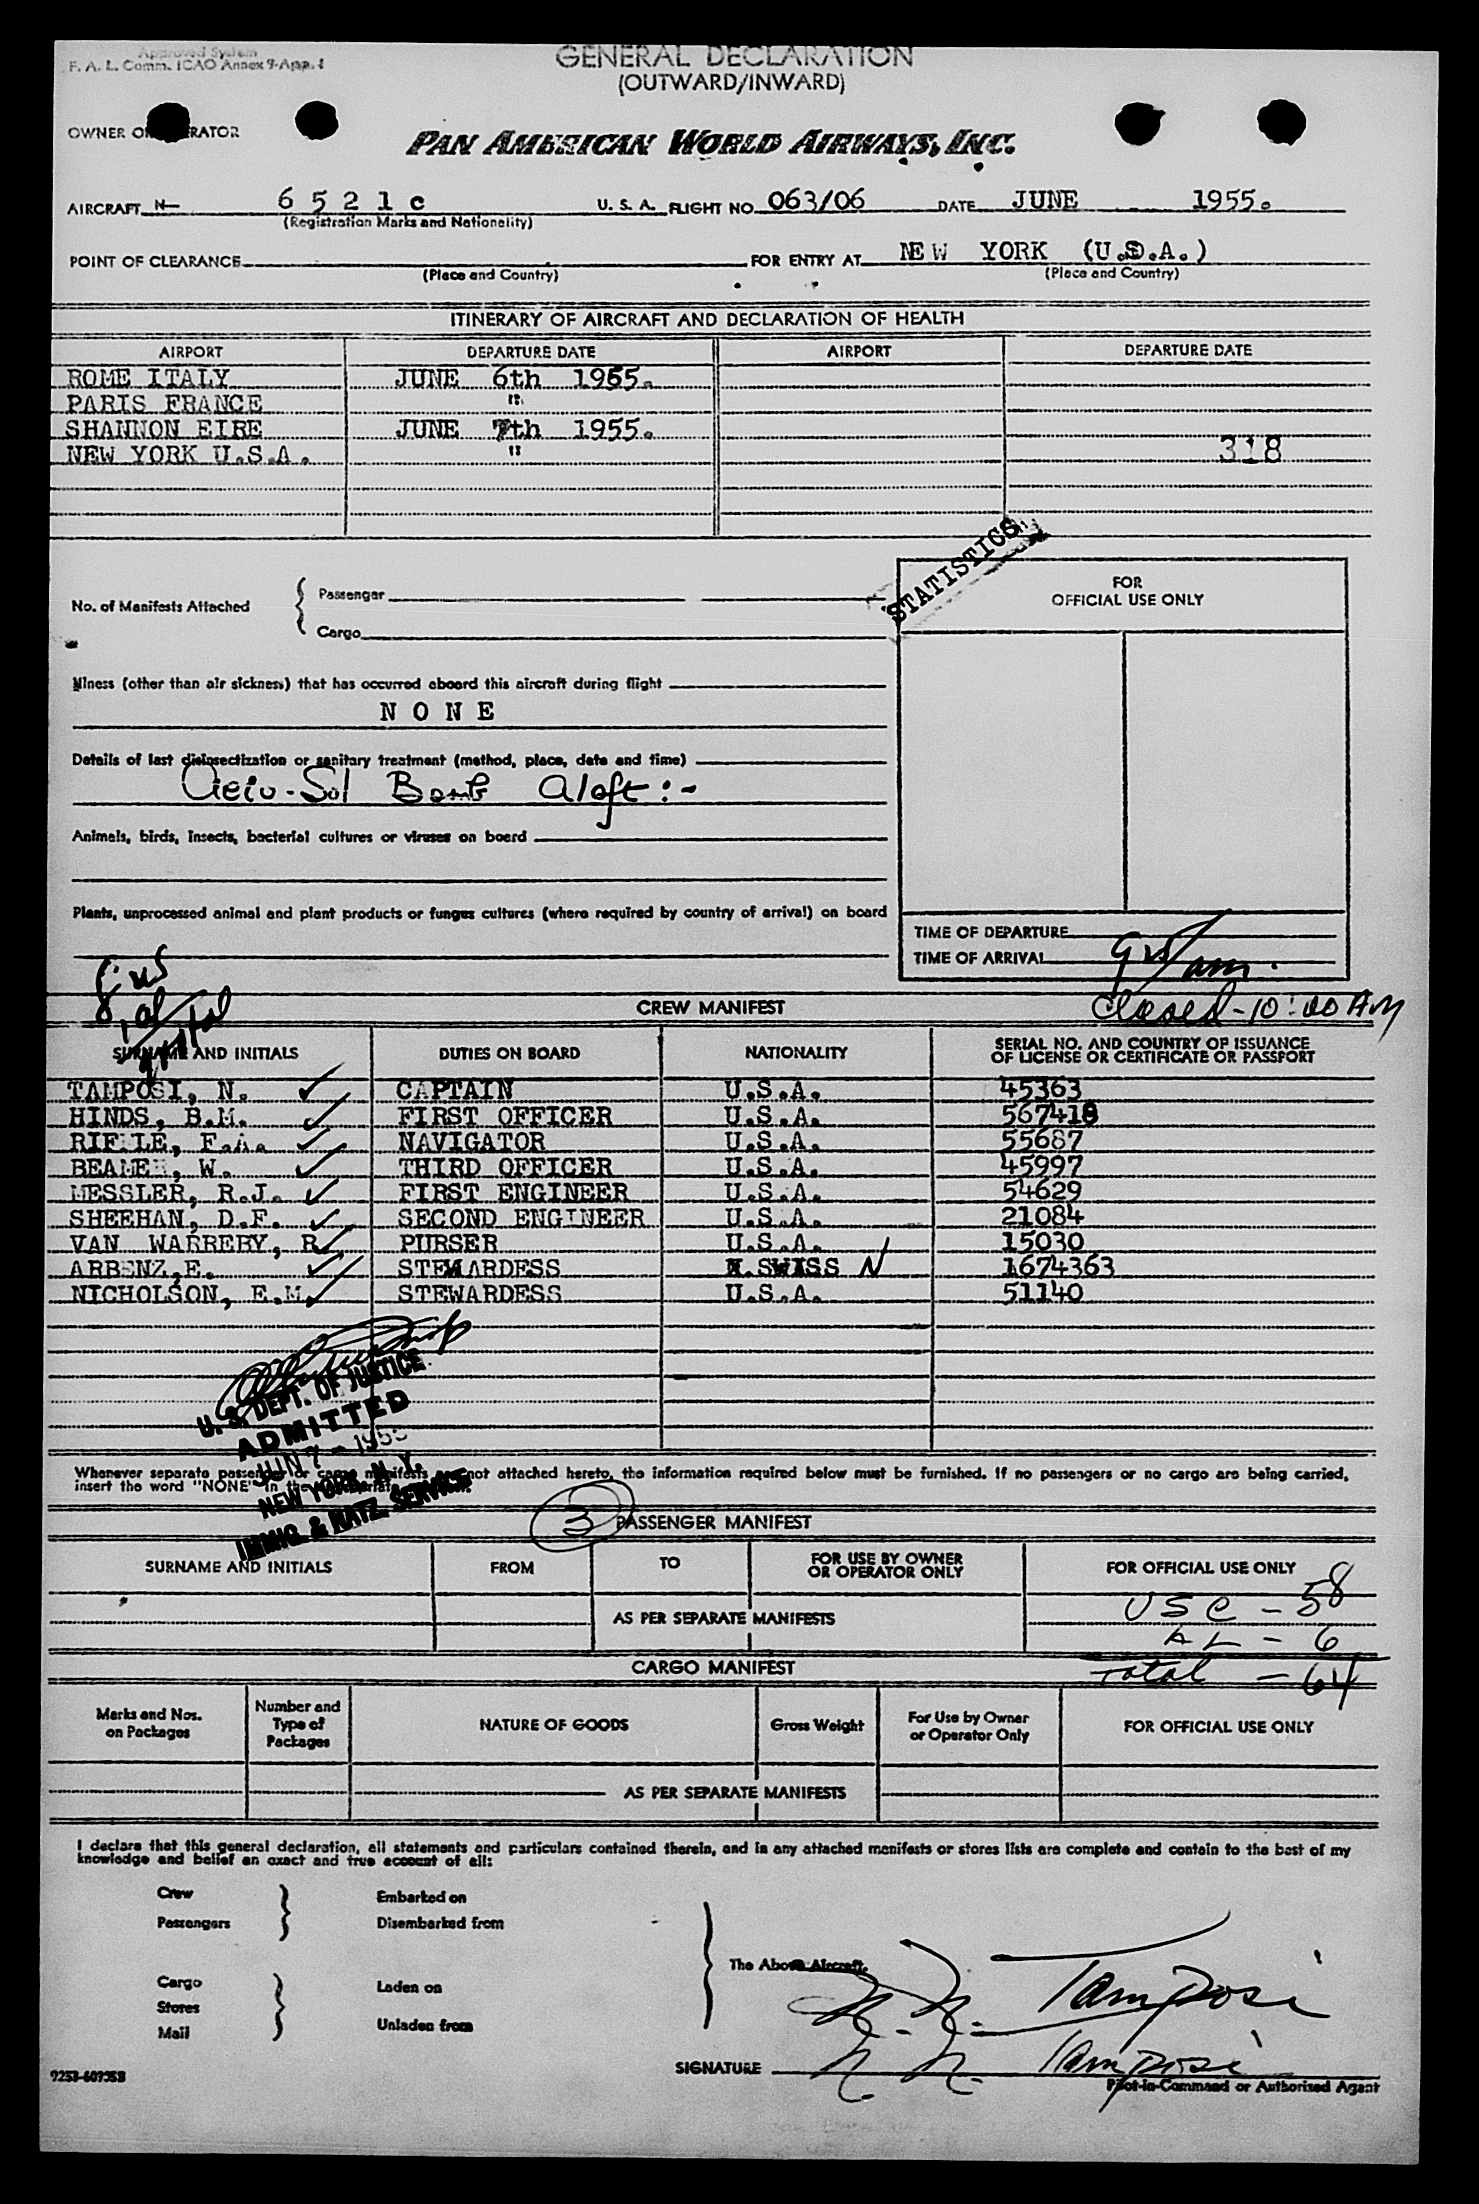 Approved System
F. A. L. Comm. ICAO Annex 9-App. 1
GENERAL DECLARATION
(OUTWARD/INWARD)
OWNER OR OPERATOR
PAN AMERICAN WORLD AIRWAYS, INC.
AIRCRAFT N- 6 5 2 1 c U. S. A. FLIGHT NO. 063/06 DATE JUNE 1955.
(Registration Marks and Nationality)
POINT OF CLEARANCE FOR ENTRY AT NEW YORK (U.S.A.)
(Place and Country) (Place and Country)
ITINERARY OF AIRCRAFT AND DECLARATION OF HEALTH
AIRPORT DEPARTURE DATE AIRPORT DEPARTURE DATE
ROME ITALY JUNE 6th 1955.
PARIS FRANCE "
SHANNON EIRE JUNE 7th 1955.
NEW YORK U.S.A. " 318
STATISTICS
FOR
OFFICIAL USE ONLY
No. of Manifests Attached { Passenger
Cargo
Illness (other than air sickness) that has occurred aboard this aircraft during flight
N O N E
Details of last disinsectization or sanitary treatment (method, place, date and time)
Bomb Aloft :-
Animals, birds, insects, bacterial cultures or viruses on board
Plants, unprocessed animal and plant products or fungus cultures (where required by country of arrival) on board
TIME OF DEPARTURE
TIME OF ARRIVAL am.
CREW MANIFEST
Closed - 10:00 AM
SURNAME AND INITIALS DUTIES ON BOARD NATIONALITY SERIAL NO. AND COUNTRY OF ISSUANCE
OF LICENSE OR CERTIFICATE OR PASSPORT
TAMPOSI, N. ✓ CAPTAIN U.S.A. 45363
HINDS, B.M. ✓ FIRST OFFICER U.S.A. 567418
F.A. ✓ NAVIGATOR U.S.A. 55687
W. ✓ THIRD OFFICER U.S.A. 45997
MESSLER, R.J. ✓ FIRST ENGINEER U.S.A. 54629
SHEEHAN, D.F. ✓ SECOND ENGINEER U.S.A. 21084
VAN WARREBY, R ✓ PURSER U.S.A. 15030
ARBENZ, E. ✓ STEWARDESS SWISS N 1674363
NICHOLSON, E.M. ✓ STEWARDESS U.S.A. 51140
U. S. DEPT. OF JUSTICE
ADMITTED
JUN 7 - 1955
NEW YORK, N. Y.
IMMIG. & NATZ. SERVICE
Whenever separate passenger or cargo manifests are not attached hereto, the information required below must be furnished. If no passengers or no cargo are being carried,
insert the word "NONE" in the appropriate
3 PASSENGER MANIFEST
SURNAME AND INITIALS FROM TO FOR USE BY OWNER
OR OPERATOR ONLY FOR OFFICIAL USE ONLY
USC - 58
AS PER SEPARATE MANIFESTS
AL - 6
CARGO MANIFEST
Total - 64
Marks and Nos.
on Packages Number and
Type of
Packages NATURE OF GOODS Gross Weight For Use by Owner
or Operator Only FOR OFFICIAL USE ONLY
AS PER SEPARATE MANIFESTS
I declare that this general declaration, all statements and particulars contained therein, and in any attached manifests or stores lists are complete and contain to the best of my
knowledge and belief an exact and true account of all:
Crew Embarked on
Passengers Disembarked from
The Above Aircraft.
Cargo Laden on
Stores
Mail Unladen from
N. N. Tamposi
SIGNATURE N. N. Tamposi
Pilot-in-Command or Authorized Agent
9253-60955B